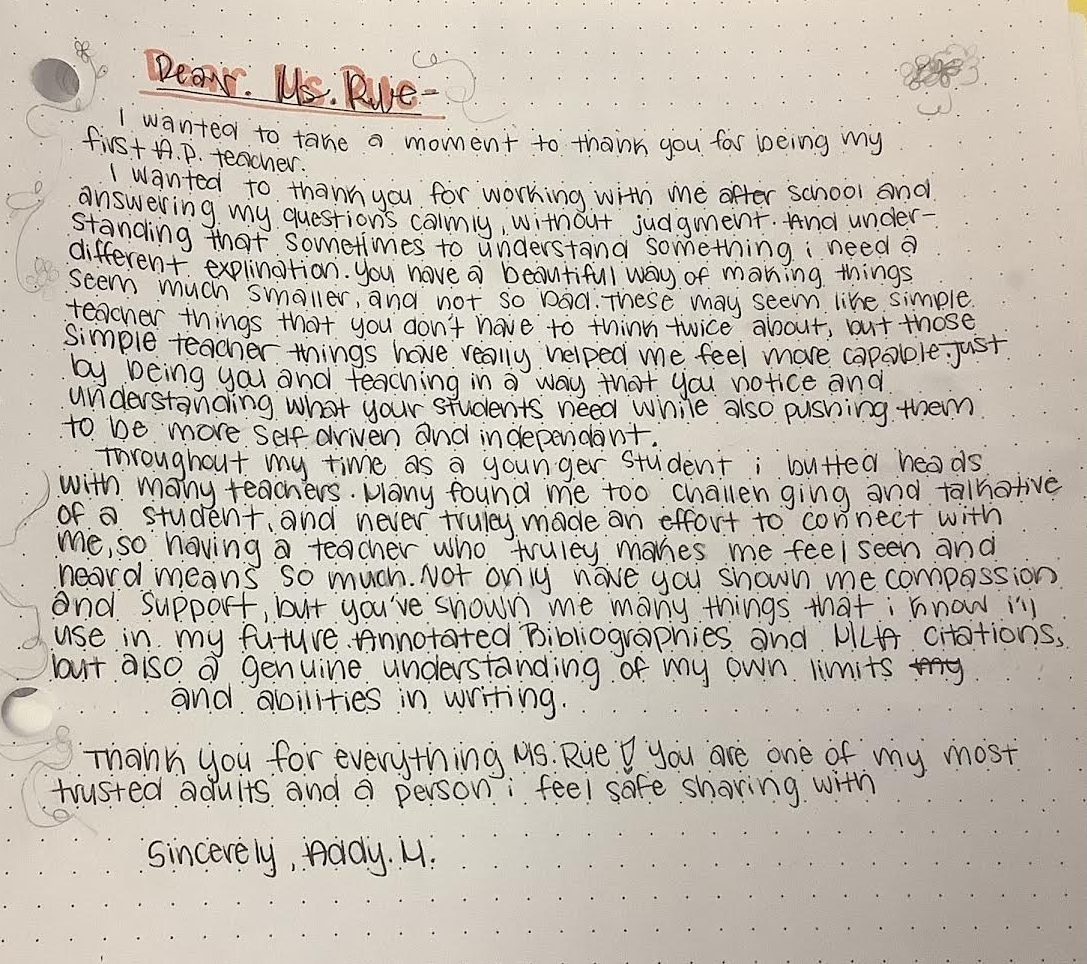 Dear. Ms. Rue-
I wanted to take a moment to thank you for being my
first A.P. teacher.
I wanted to thank you for working with me after school and
answering my questions calmly, without judgment. And under-
standing that sometimes to understand something i need a
different explination. You have a beautiful way of making things
seem much smaller, and not so bad. These may seem like simple
teacher things that you don't have to think twice about, but those
simple teacher things have really helped me feel more capable. Just
by being you and teaching in a way that you notice and
understanding what your students need while also pushing them
to be more self driven and independant.
Throughout my time as a younger student i butted heads
with many teachers. Many found me too challenging and talkative
of a student, and never truley made an effort to connect with
me, so having a teacher who truley makes me feel seen and
heard means so much. Not only have you shown me compassion
and support, but you've shown me many things that i know i'll
use in my future. Annotated Bibliographies and MLA citations,
but also a genuine understanding of my own limits my
and abilities in writing.
Thank you for everything Ms. Rue! You are one of my most
trusted adults and a person i feel safe sharing with
Sincerely, Addy. M.